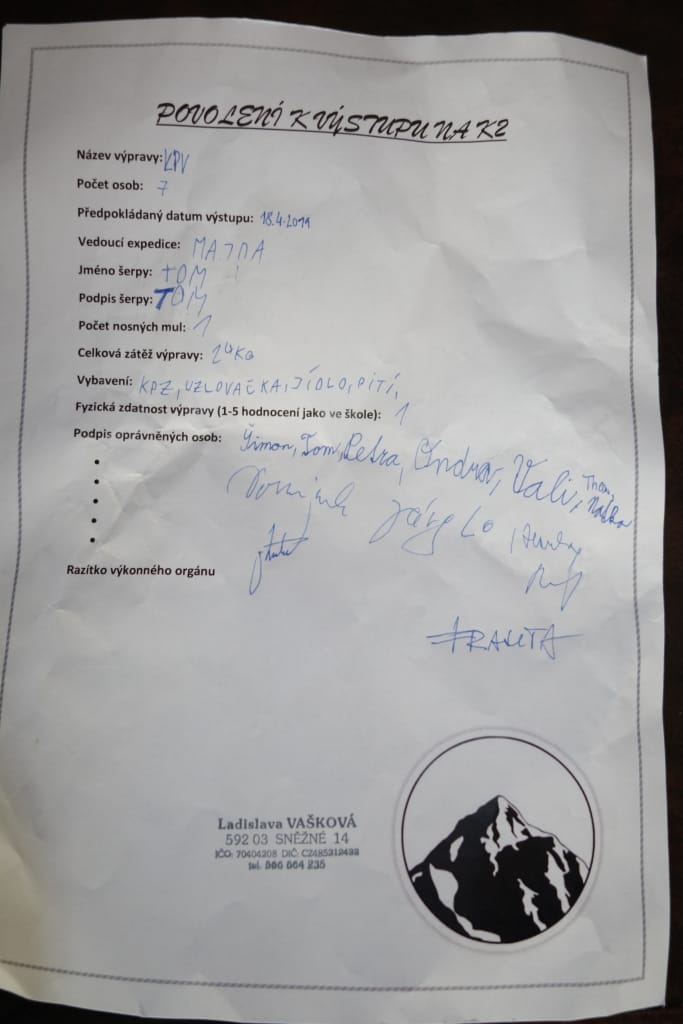 POVOLENÍ K VÝSTUPU NA K2
Název výpravy: KPV
Počet osob: 7
Předpokládaný datum výstupu: 18.4.2019
Vedoucí expedice: MAJDA
Jméno šerpy: TOM
Podpis šerpy: TOM
Počet nosných mul: 1
Celková zátěž výpravy: 24KG
Vybavení: KPZ, UZLOVAČKA, JÍDLO, PITÍ,
Fyzická zdatnost výpravy (1-5 hodnocení jako ve škole): 1
Podpis oprávněných osob: Šimon, Tom, Petra, Ondra, Vali,
Dominik
Razítko výkonného orgánu
FRANTA
Ladislava VAŠKOVÁ
592 03 SNĚŽNÉ 14
IČO: 70404208 DIČ: CZ485312433
tel. 566 664 235